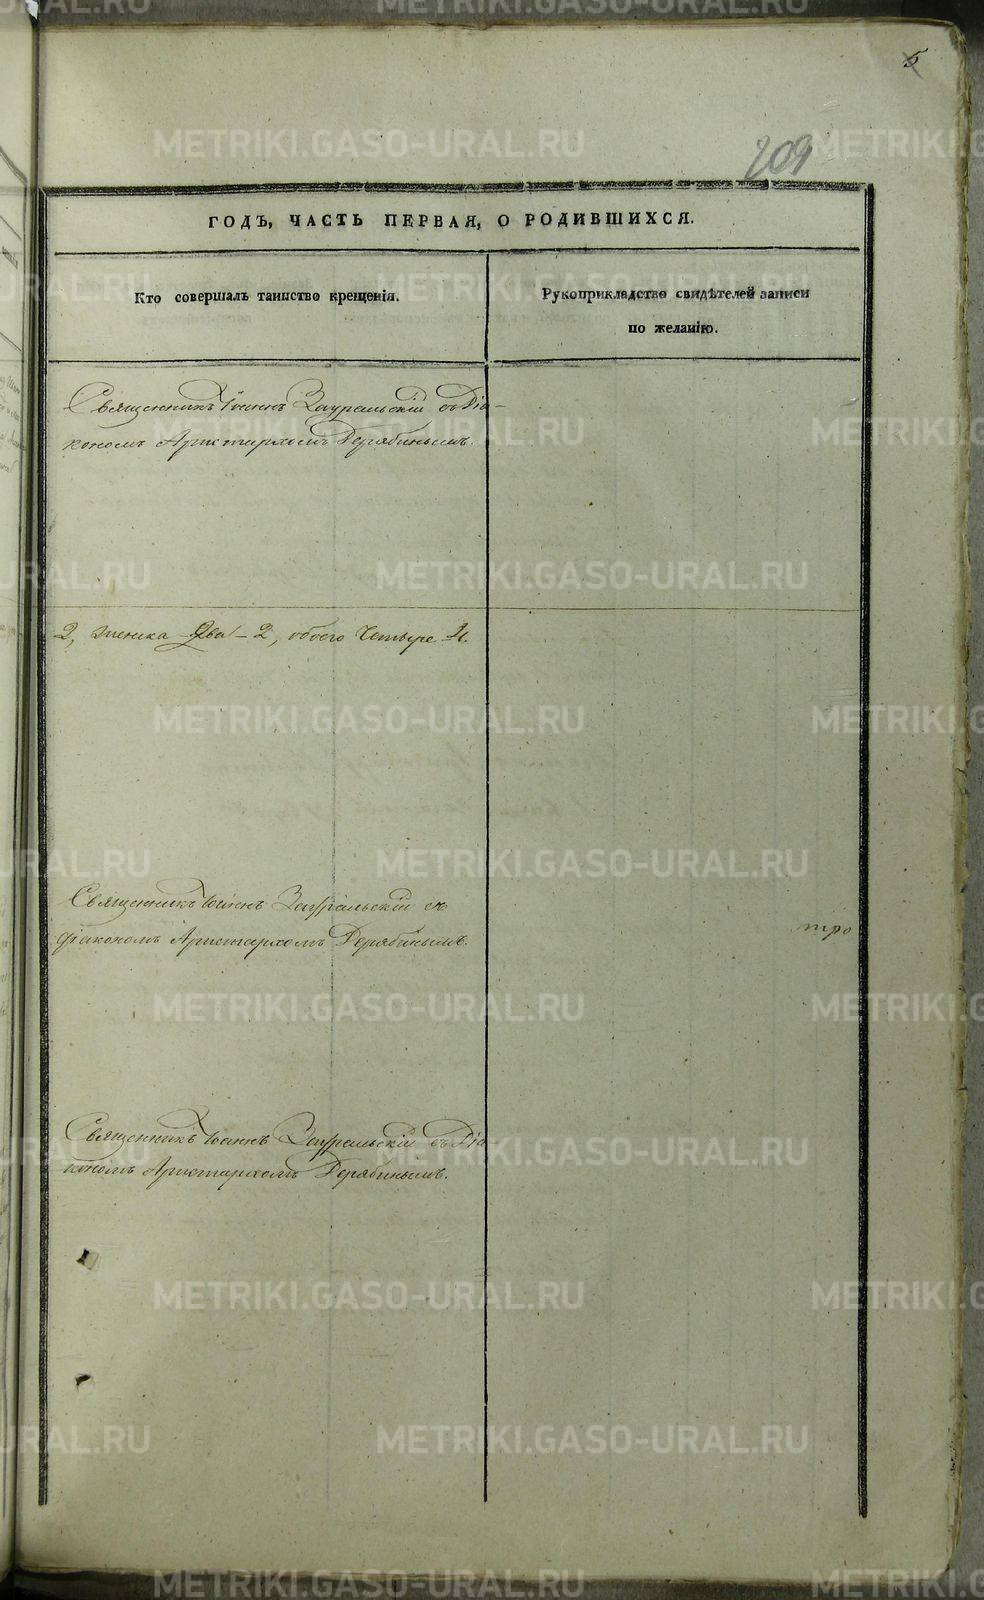 5
209
ГОДЪ, ЧАСТЬ ПЕРВАЯ, О РОДИВШИХСЯ.
Кто совершалъ таинство крещенія.
Рукоприкладство свидѣтелей записи
по желанію.
Священникъ Іоаннъ Зауральскій съ Діа-
кономъ Аристархомъ Дерябинымъ.
2, женска Два - 2, обоего Четыре 4.
Священникъ Іоаннъ Зауральскій съ
діакономъ Аристархомъ Дерябинымъ.
Священникъ Іоаннъ Зауральскій съ Діа
кономъ Аристархомъ Дерябинымъ.
METRIKI.GASO-URAL.RU